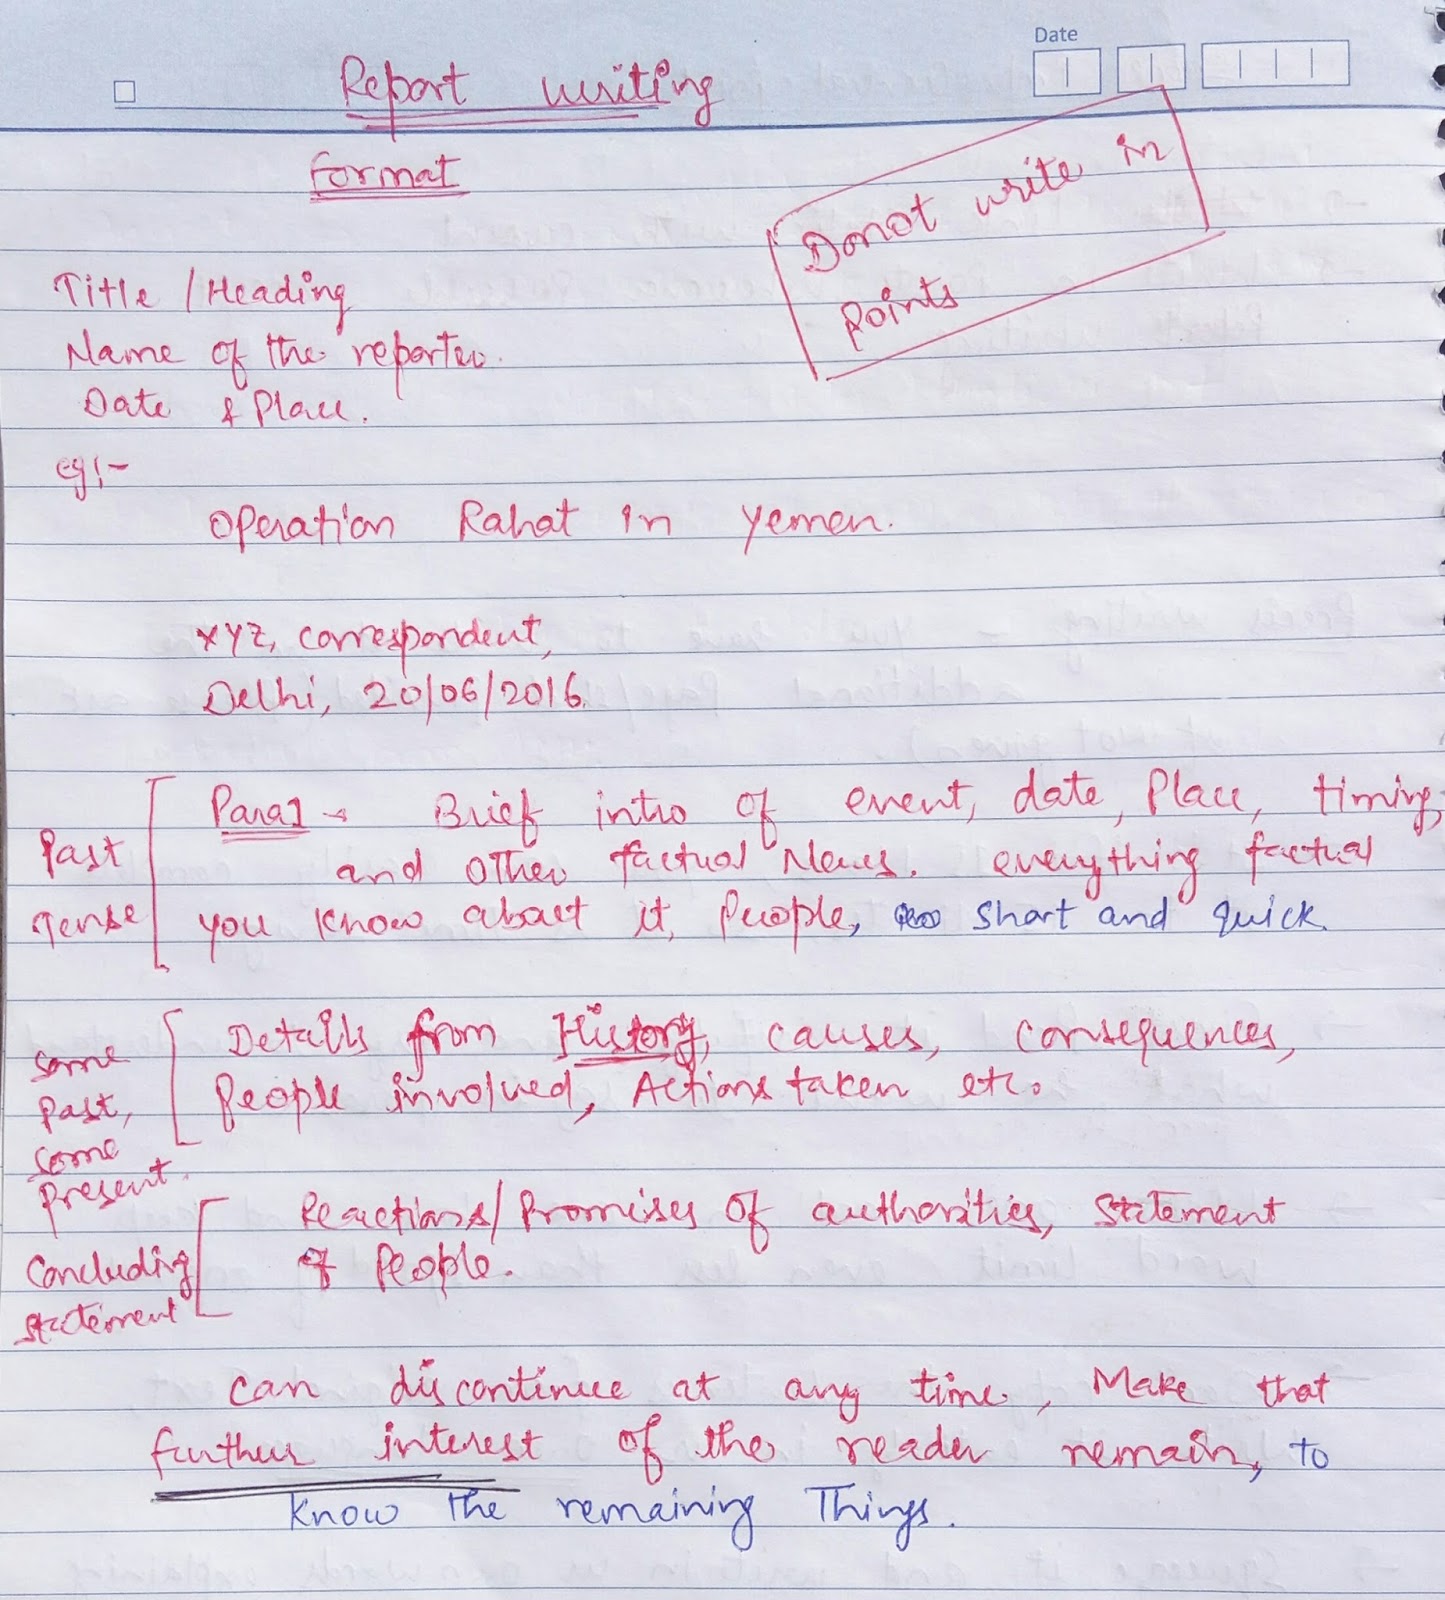 Date
Report writing
format
Do not write in
points
Title / Heading
Name of the reporter.
Date & Place.
eg:-
Operation Rahat in Yemen.
XYZ, correspondent,
Delhi, 20/06/2016.
Past
Tense
Para1 → Brief intro of event, date, Place, timing,
and other factual News. everything factual
you know about it, People, short and quick.
some
past,
some
present.
Details from History, causes, consequences,
People involved, Actions taken etc.
Concluding
statement
Reactions/Promises of authorities, statement
of People.
can discontinue at any time, Make that
further interest of the reader remain, to
know the remaining Things.